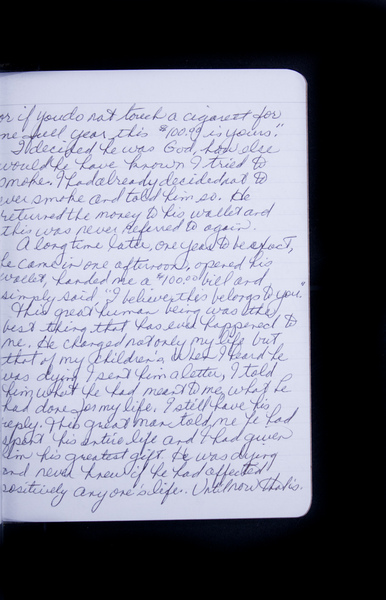 or if you do not touch a cigarest for
ne full year, this $100.00 is yours."
I decided he was God, how else
would he have known I tried to
smoke. I had already decided not to
ever smoke and told him so. He
returned the money to his wallet and
this was never referred to again.
A long time later, one year to be exact,
he came in one afternoon, opened his
wallet, handed me a $100.00 bill and
simply said, "I believe this belongs to you."
This great human being was the
best thing that has ever happened to
me. He changed not only my life but
that of my children's. When I heard he
was dying I sent him a letter, I told
him what he had meant to me, what he
had done for my life, I still have his
reply. This great man told me he had
spent his entire life and I had given
him his greatest gift. He was dying
and never knew if he had affected
positively anyone's life. Until now that is.